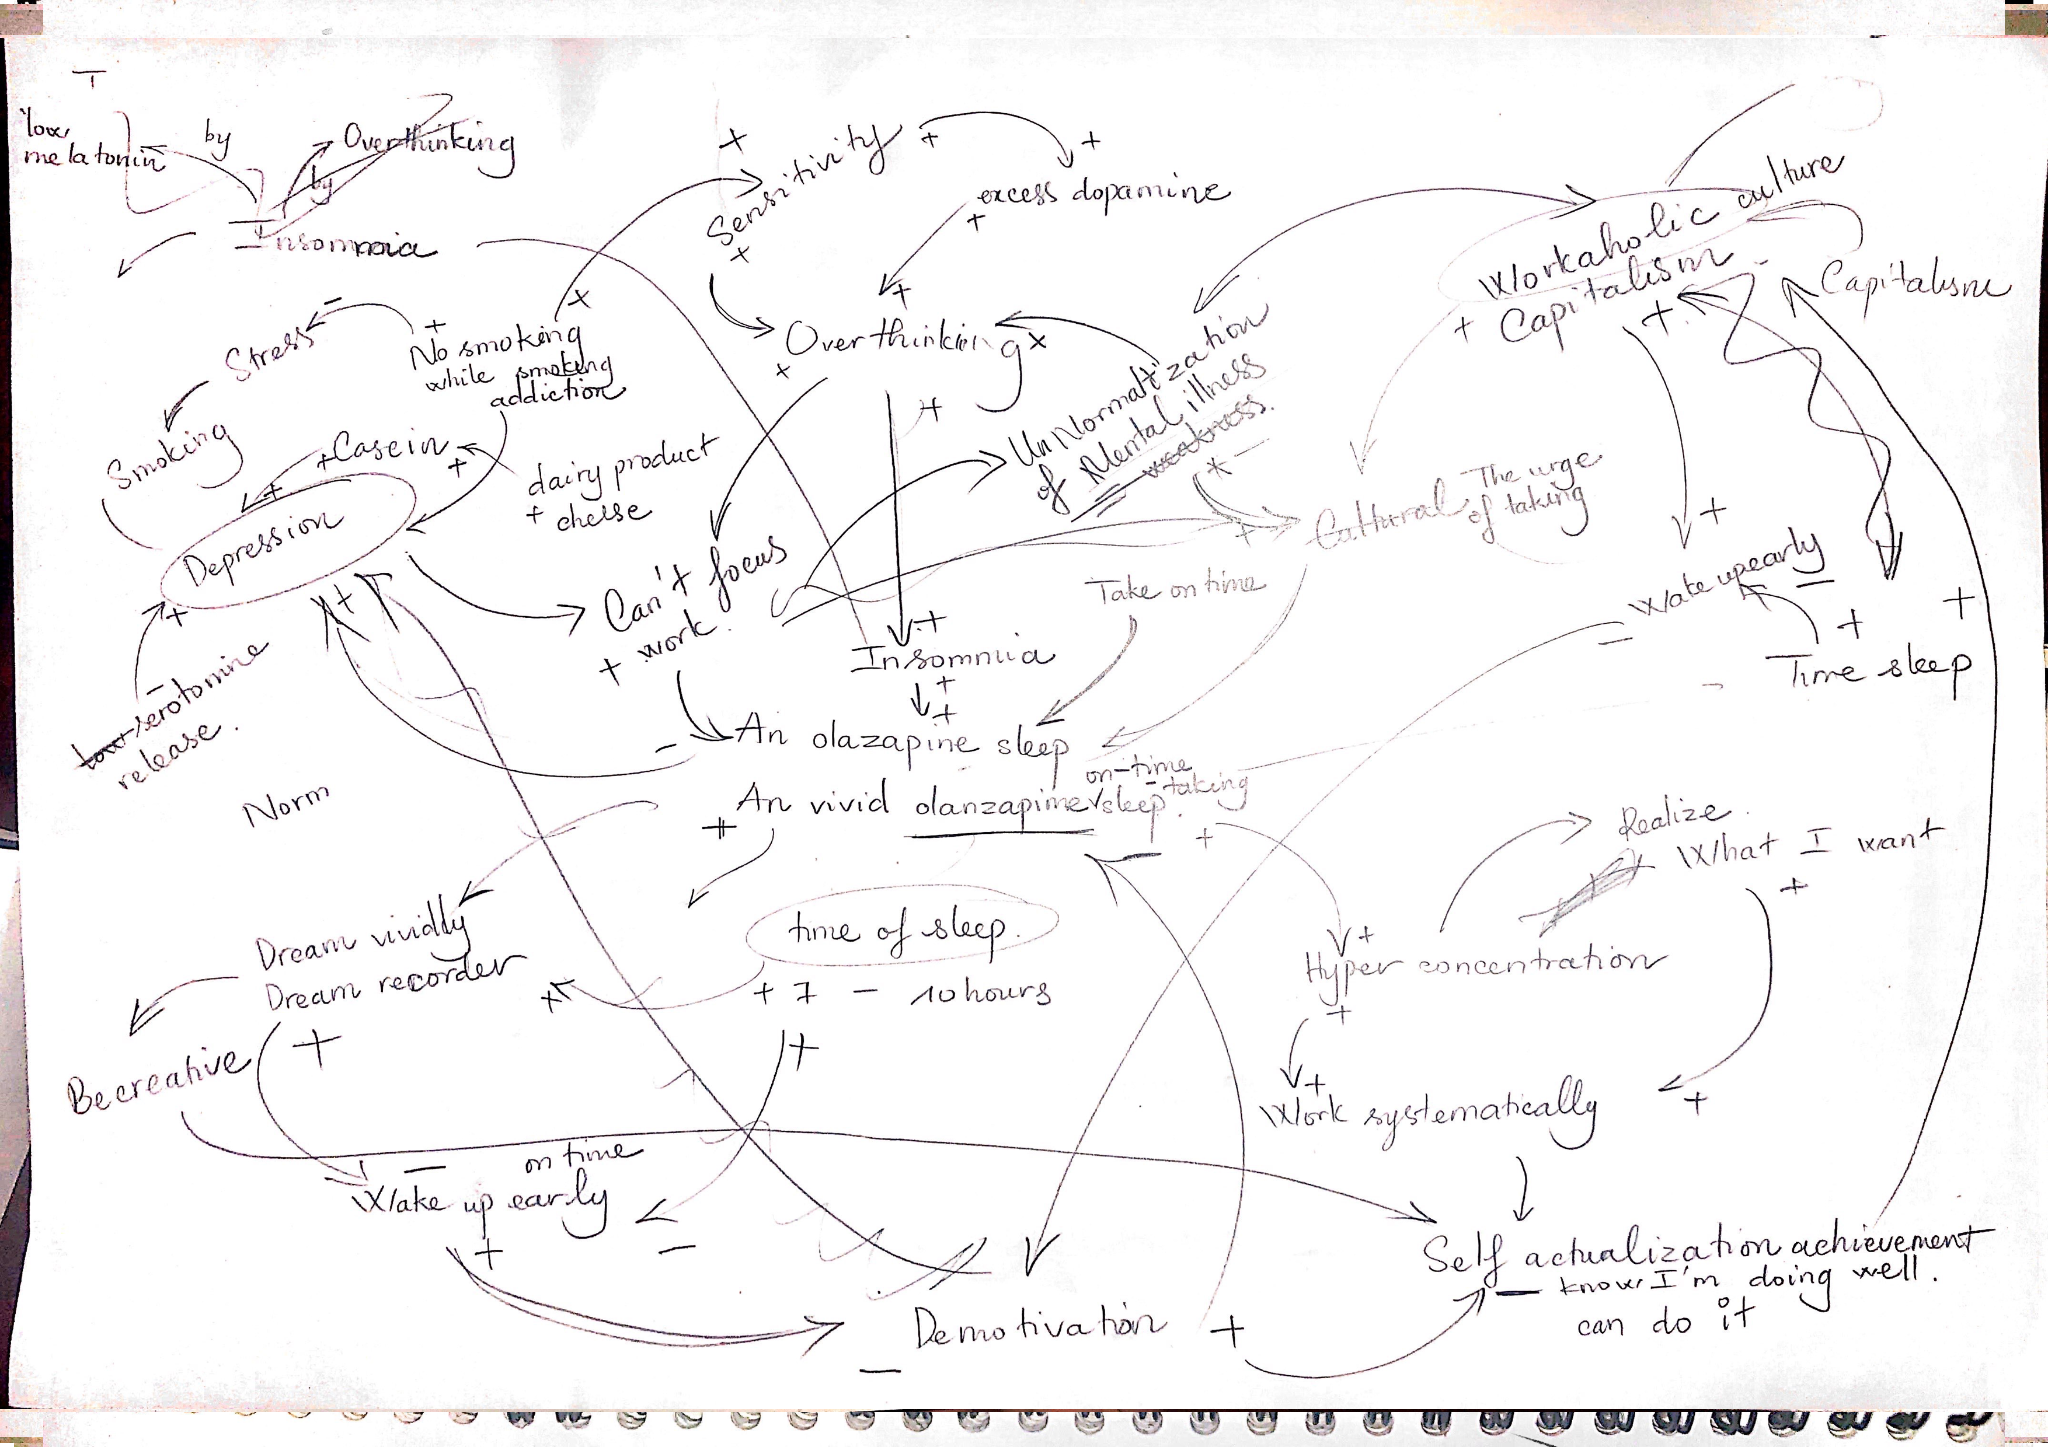 T
low
melatonin
by
Overthinking
by
Insomnia
Sensitivity
excess dopamine
Workaholic culture
Capitalism
Capitalism
Stress
No smoking
while smoking
addiction
Overthinking
UnNormalization
of Mental illness
weakness.
Smoking
Casein
dairy product
cheese
Cultural
The urge
of taking
Depression
Can't focus
work.
Take on time
Wake up early
Insomnia
Time sleep
low serotomine
release.
An olazapine sleep
on-time
An vivid olanzapime sleep. taking
Norm
Realize
What I want
Dream vividly
Dream recorder
time of sleep.
+ 7 - 10 hours
Hyper concentration
Be creative
Work systematically
on time
Wake up early
Self actualization achievement
know I'm doing well.
can do it
Demotivation